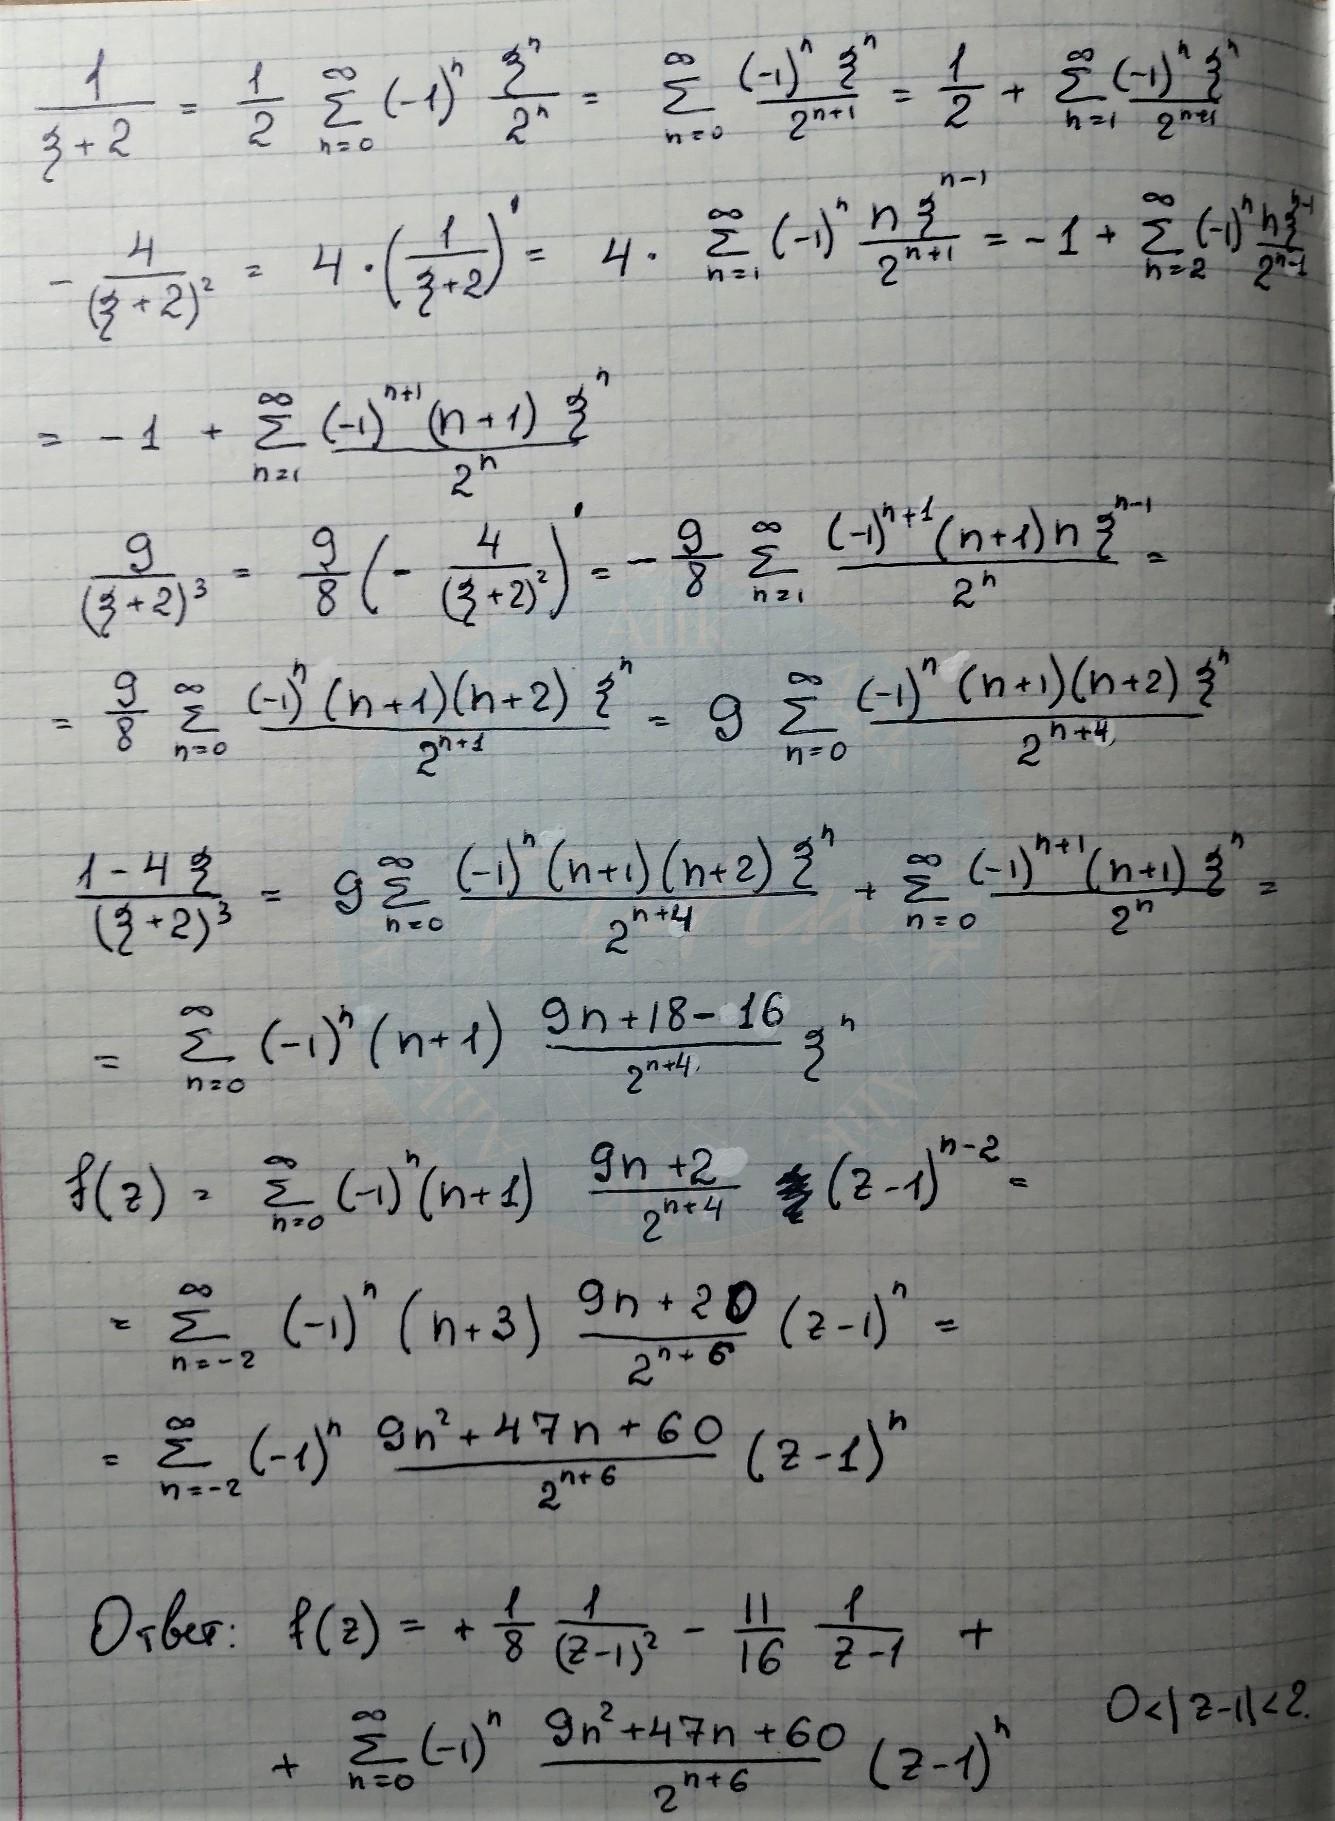 1/(ξ+2) = 1/2 ∑_{n=0}^{∞} (-1)^n ξ^n/2^n = ∑_{n=0}^{∞} (-1)^n ξ^n/2^{n+1} = 1/2 + ∑_{n=1}^{∞} (-1)^n ξ^n/2^{n+1}
- 4/(ξ+2)^2 = 4·(1/(ξ+2))' = 4· ∑_{n=1}^{∞} (-1)^n nξ^{n-1}/2^{n+1} = -1 + ∑_{n=2}^{∞} (-1)^n nξ^{n-1}/2^{n-1}
= -1 + ∑_{n=1}^{∞} (-1)^{n+1}(n+1) ξ^n/2^n
9/(ξ+2)^3 = 9/8 (- 4/(ξ+2)^2)' = - 9/8 ∑_{n=1}^{∞} (-1)^{n+1}(n+1)n ξ^{n-1}/2^n =
= 9/8 ∑_{n=0}^{∞} (-1)^n (n+1)(n+2) ξ^n/2^{n+1} = 9 ∑_{n=0}^{∞} (-1)^n (n+1)(n+2) ξ^n/2^{n+4}
(1-4ξ)/(ξ+2)^3 = 9 ∑_{n=0}^{∞} (-1)^n (n+1)(n+2) ξ^n/2^{n+4} + ∑_{n=0}^{∞} (-1)^{n+1}(n+1) ξ^n/2^n =
= ∑_{n=0}^{∞} (-1)^n (n+1) (9n+18-16)/2^{n+4} ξ^n
f(z) = ∑_{n=0}^{∞} (-1)^n (n+1) (9n+2)/2^{n+4} (z-1)^{n-2} =
= ∑_{n=-2}^{∞} (-1)^n (n+3) (9n+20)/2^{n+6} (z-1)^n =
= ∑_{n=-2}^{∞} (-1)^n (9n^2+47n+60)/2^{n+6} (z-1)^n
Ответ: f(z) = + 1/8 1/(z-1)^2 - 11/16 1/(z-1) +
+ ∑_{n=0}^{∞} (-1)^n (9n^2+47n+60)/2^{n+6} (z-1)^n
0<|z-1|<2.